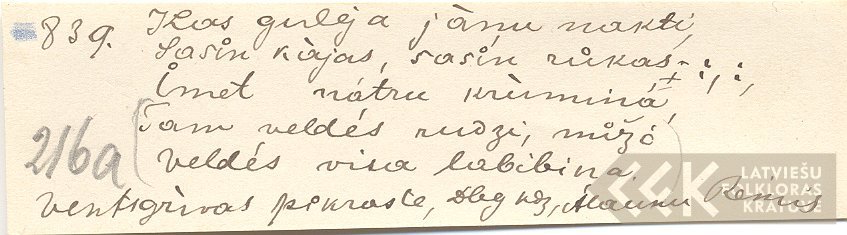 839. Kas gulēja jāņu nakti,
Sasin kājas, sasin rūkas :,:,
Imet nātru krūmiņā,
Tam veldēs rudzi, mūžō
216a veldēs visa labibiņa.
Ventsgrīvas pikraste,
LATVIEŠU
FOLKLORAS
KRĀTUVE